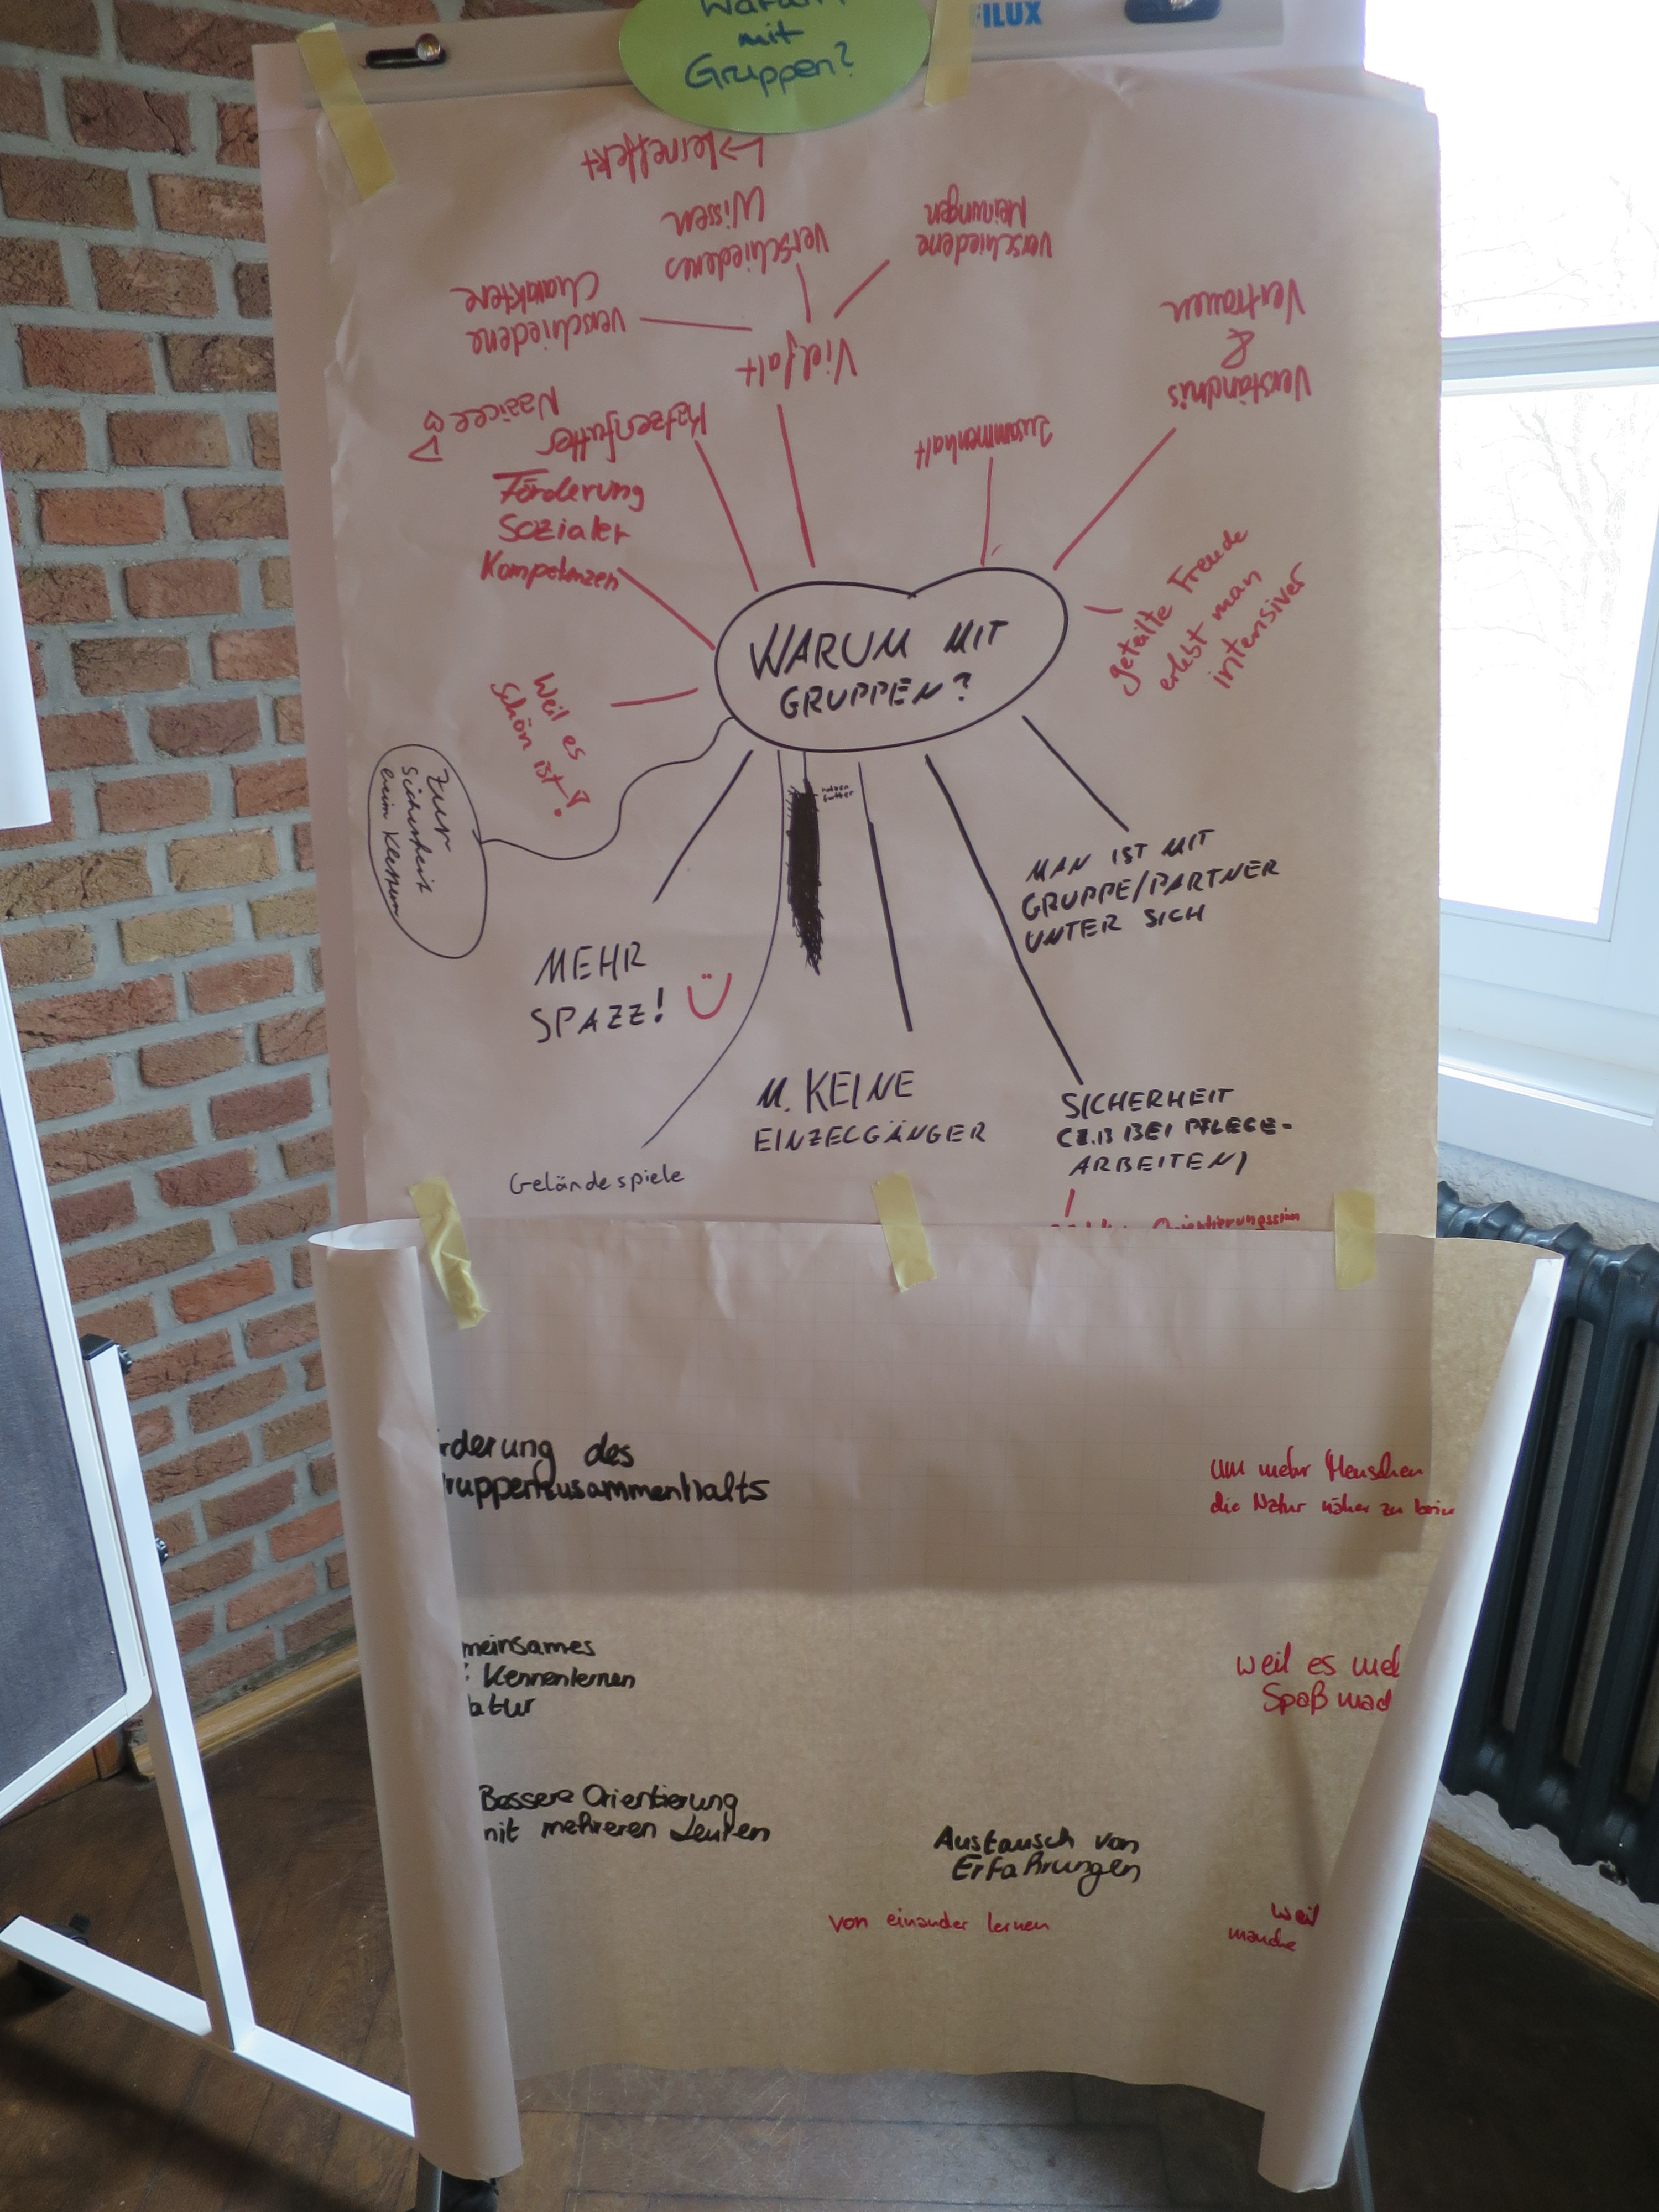 Warum
mit
Gruppen?
FILUX
→ Lerneffekt
verschiedenes
Wissen
verschiedene
Meinungen
verschiedene
Charaktere
Vielfalt
Verständnis
&
Vertrauen
Katzenfutter
Zusammenhalt
Förderung
Sozialer
Kompetenzen
geteilte Freude
erlebt man
intensiver
WARUM MIT
GRUPPEN?
Weil es
schön ist!
zur
Sicherheit
beim Klettern
MAN IST MIT
GRUPPE/PARTNER
UNTER SICH
MEHR
SPAZZ!
M. KEINE
EINZELGÄNGER
SICHERHEIT
(Z.B BEI PFLEGE-
ARBEITEN)
Geländespiele
Orientierungssinn
rderung des
ruppenzusammenhalts
um mehr Menschen
die Natur näher zu brin
meinsames
Kennenlernen
atur
weil es meh
Spaß mach
Bessere Orientierung
mit mehreren Leuten
Austausch von
Erfahrungen
von einander lernen
weil
manche